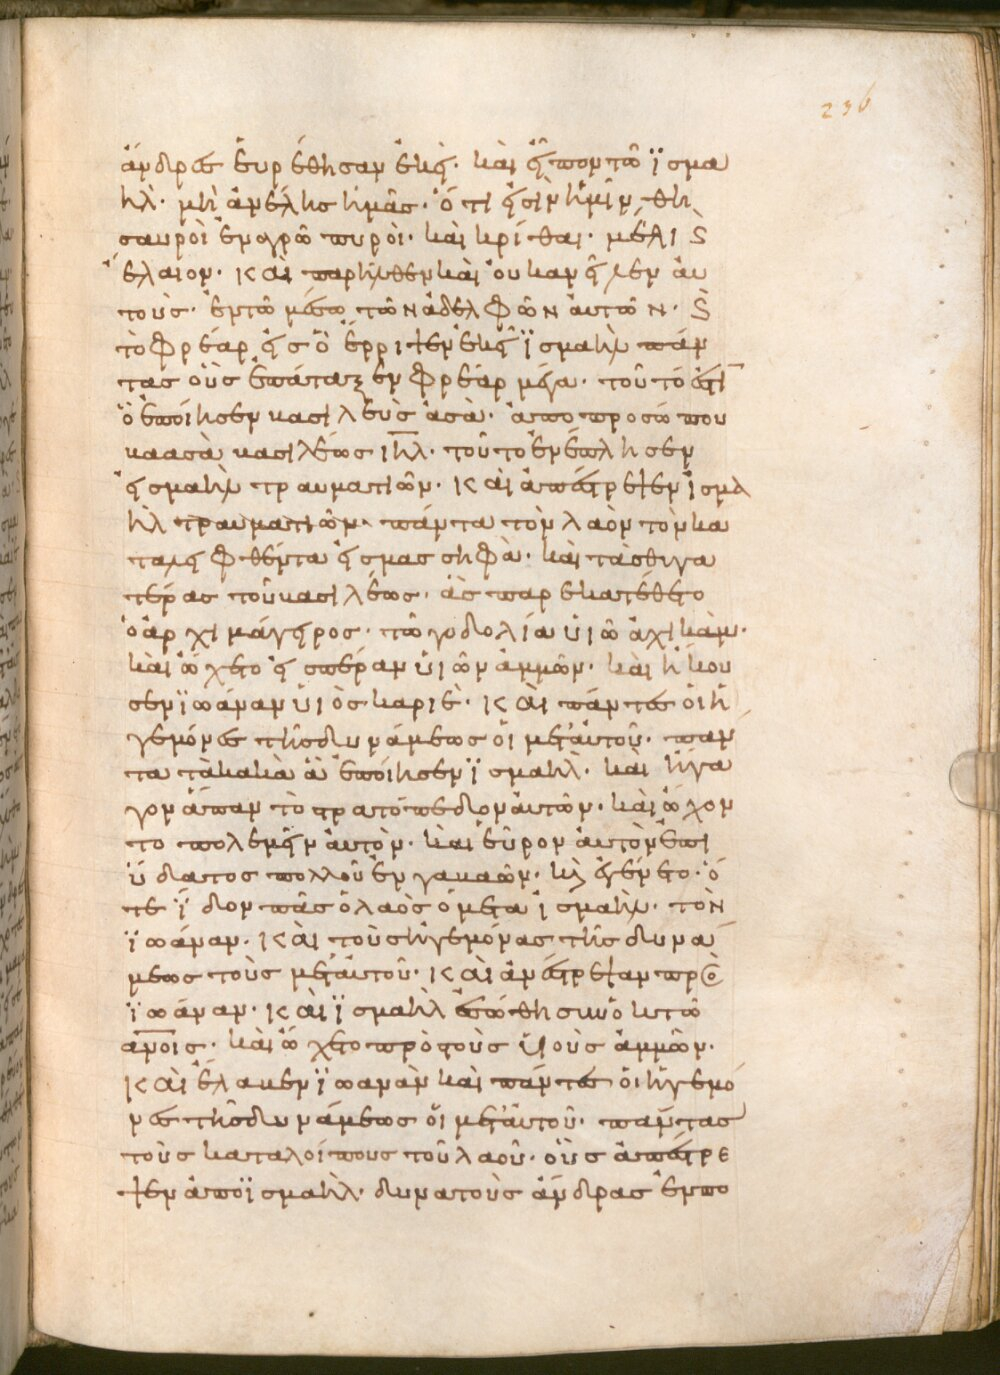 236
ἄνδρες ἑυρέθησαν ἐκεῖ· καὶ εἶπον τῶ ἰσμα
ήλ· μὴ ἀνέλης ἡμᾶς· ὅτι εἰσὶν ἡμῖν θη
σαυροὶ ἐν ἀγρῶ πυροὶ· καὶ κριθαι· μέλι ϗ
ἔλαιον· καὶ παρῆλθεν καὶ ὀυκ ἀνεῖλεν ἀυ
τοὺς· ἐν τῶ μέσω τῶν ἀδελφῶν ἀυτῶν· ϗ
τὸ φρέαρ εἰς ὃ ἔρριψεν ἐκεῖ ἰσμαὴλ πάν
τας οὓς ἐπάταξεν φρέαρ μέγα· τοῦτό ἐστι
ὃ ἐποίησεν βασιλεὺς ἀσὰ· ἀπο προσώπου
βαασὰ βασιλέως ιηλ· τοῦτο ἐνέπλησεν
ἰσμαὴλ τραυματιῶν· καὶ ἀπέστρεψεν ἰσμα
ὴλ τραυματιῶν· πάντα τὸν λαὸν τὸν κα
ταλειφθέντα εἰς μασσηφὰ· καὶ τὰς θυγα
τέρας τοῦ βασιλέως· ἃς παρεκατέθετο
ὁ ἀρχιμάγειρος· τῶ γοδολία ὑιῶ ἀχικὰμ·
καὶ ὤχετο εἰς πέραν ὑιῶν ἀμμῶν· καὶ ἤκου
σεν ἰωάναν ὑιὸς καριὲ· καὶ πάντες ὁι ἡ
γεμόνες τῆς δυνάμεως ὁι μετἀυτοῦ· παν
τα τὰ κακὰ ἃ ἐποίησεν ἰσμαὴλ· καὶ ἤγα
γον ἅπαν τὸ στρατόπεδον ἀυτῶν· καὶ ὤχον
το πολεμεῖν ἀυτὸν· καὶ ἑῦρον ἀυτὸν ἐπι
ὕδατος πολλοῦ ἐν γαβαῶν· κ ἐγένετο· ὅ
τε ἴδον πᾶς ὁ λαὸς ὁ μετα ἰσμαὴλ· τὸν
ἰωάναν· καὶ τοὺς ἡγεμόνας τῆς δυνα
μεως τοὺς μετἀυτοῦ· καὶ ἀνέστρεψαν πρὸς
ἰωάναν· καὶ ἰσμαὴλ ἐσώθη συν ὀκτῶ
ανοις· καὶ ὤχετο πρὸς τοὺς ὑιοὺς ἀμμῶν·
καὶ ἔλαβεν ἰωαναν καὶ πάντες ὁι ἡγεμό
νες τῆς δυνάμεως ὁι μετἀυτοῦ· πάντας
τοὺς καταλοίπους τοῦ λαοῦ· οὓς ἀπέστρε
ψεν ἀπο ἰσμαὴλ· δυνατοὺς ἄνδρας ἐν πο